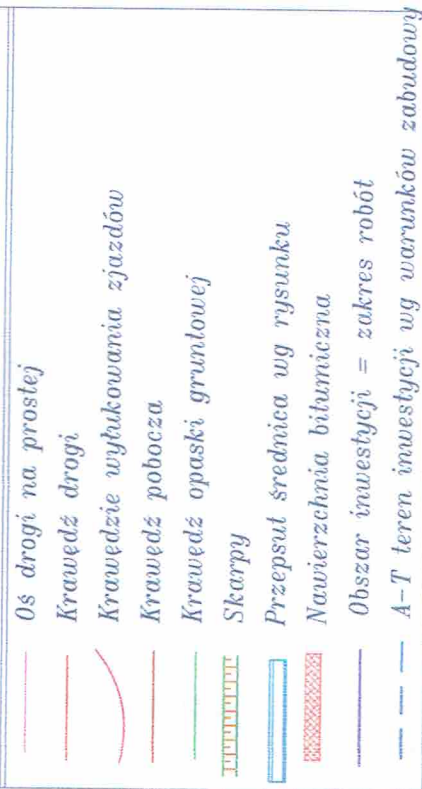 Oś drogi na prostej
Krawędź drogi
Krawędzie wyłukowania zjazdów
Krawędź pobocza
Krawędź opaski gruntowej
Skarpy
Przepsut średnica wg rysunku
Nawierzchnia bitumiczna
Obszar inwestycji = zakres robót
A-T teren inwestycji wg warunków zabudowy